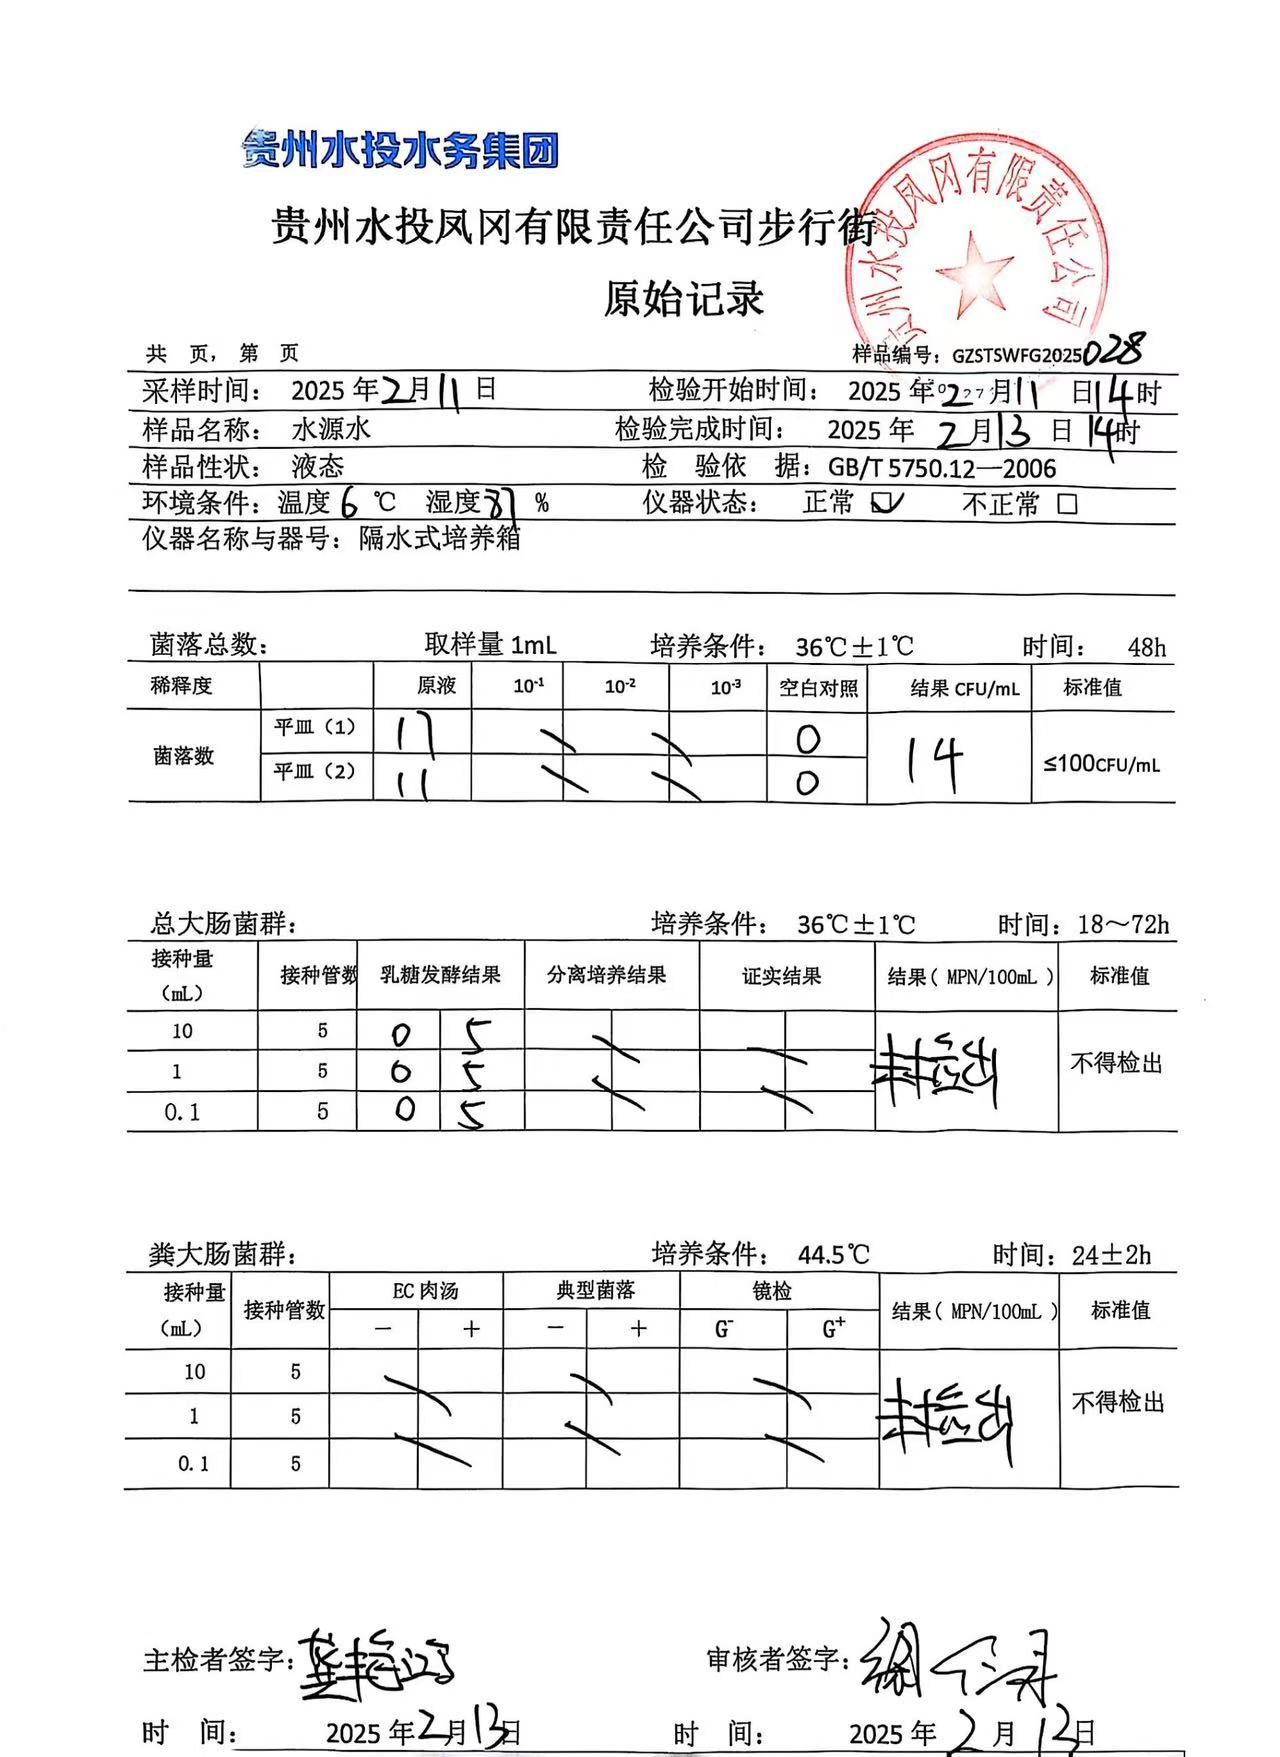 贵州水投水务集团
贵州水投凤冈有限责任公司步行街
原始记录
贵州水投凤冈有限责任公司
共 页，第 页 样品编号：GZSTSWFG2025028
采样时间： 2025 年2月11日 检验开始时间： 2025 年2月11日14时
样品名称： 水源水 检验完成时间： 2025 年 2月13日 14时
样品性状： 液态 检 验依 据：GB/T 5750.12—2006
环境条件：温度6 ℃ 湿度87 % 仪器状态： 正常 ☑ 不正常 □
仪器名称与器号：隔水式培养箱
菌落总数： 取样量 1mL 培养条件： 36℃±1℃ 时间： 48h
稀释度 原液 10⁻¹ 10⁻² 10⁻³ 空白对照 结果 CFU/mL 标准值
菌落数 平皿（1） 17 \ \ 0 14 ≤100CFU/mL
平皿（2） 11 \ \ 0
总大肠菌群： 培养条件： 36℃±1℃ 时间：18～72h
接种量（mL） 接种管数 乳糖发酵结果 分离培养结果 证实结果 结果（ MPN/100mL ） 标准值
10 5 0 5 \ \ 未检出 不得检出
1 5 0 5 \ \
0.1 5 0 5
粪大肠菌群： 培养条件： 44.5℃ 时间：24±2h
接种量（mL） 接种管数 EC 肉汤 典型菌落 镜检 结果（ MPN/100mL ） 标准值
－ ＋ － ＋ G⁻ G⁺
10 5 \ \ \ 未检出 不得检出
1 5 \ \ \
0.1 5
主检者签字： 审核者签字：
时 间： 2025 年2月13日 时 间： 2025 年 2 月 13日